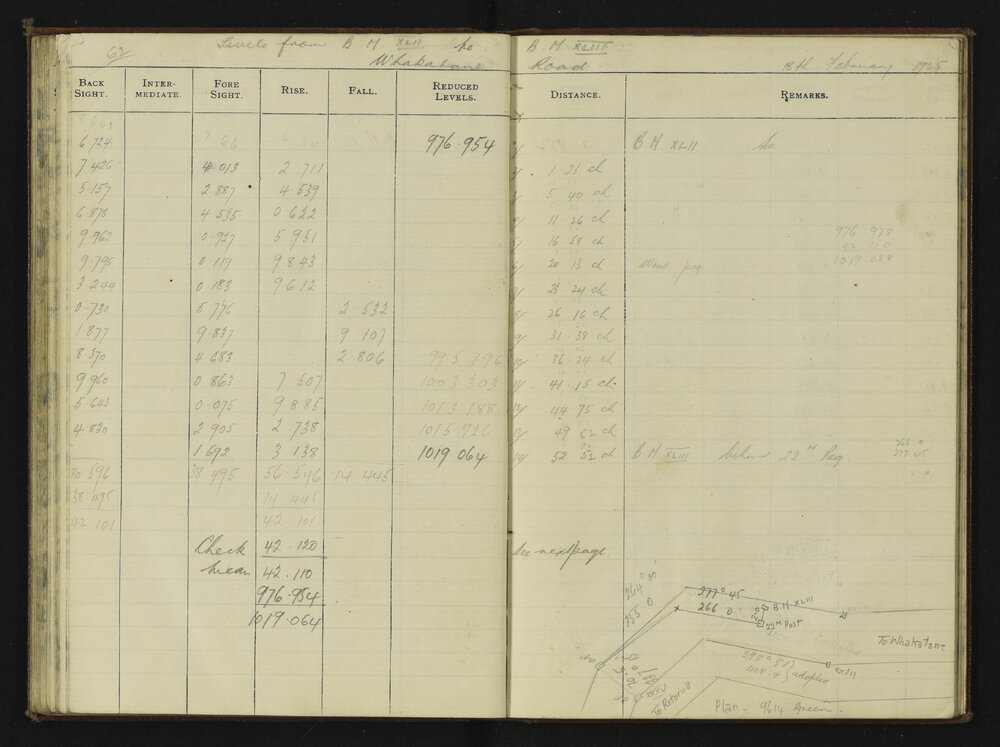 62 Levels from B M XLII to B. M XLIII
Whakatane Road 18th February 1925
BACK SIGHT. INTER-MEDIATE. FORE SIGHT. RISE. FALL. REDUCED LEVELS. DISTANCE. REMARKS.
8 643
6 724 976.954 B.M. XLII to
7 426 4 013 2 711 1 25 ch
5 157 2 887 4 539 5 40 ch
6.878 4.535 0 622 11.26 ch
9.962 0.927 5 951 16 58 ch 976 978
42 110
9.795 0.119 9 843 20.13 ch peg 1019 088
3 244 0 183 9 612 23 24 ch
0.730 5 776 2 532 26.16 ch
1 877 9.837 9 107 31.38 ch
8.370 4.683 2 806 995 796 36.24 ch
9 960 0 863 7 507 1003 303 41.15 ch.
5 643 0.075 9.885 1013.188 44 95 ch
4.830 2 905 2.738 1015 926 49 62 ch
1 692 3 138 1019 064 52 52 ch B M XLIII behind 22 M Peg. 266 0
277 45
80 596 38 495 56.546 14 445
38 495 14 445
42 101 42 101
Check 42.120 See next page
mean 42.110
976.954
1019.064
264° 00
255 0
277° 45
266 0
B M XLIII
22 M Post
To Whakatane
298° 51
408.9 } adopted
XXVII
XXXV
To Rotorua
Plan. 9614 Green.